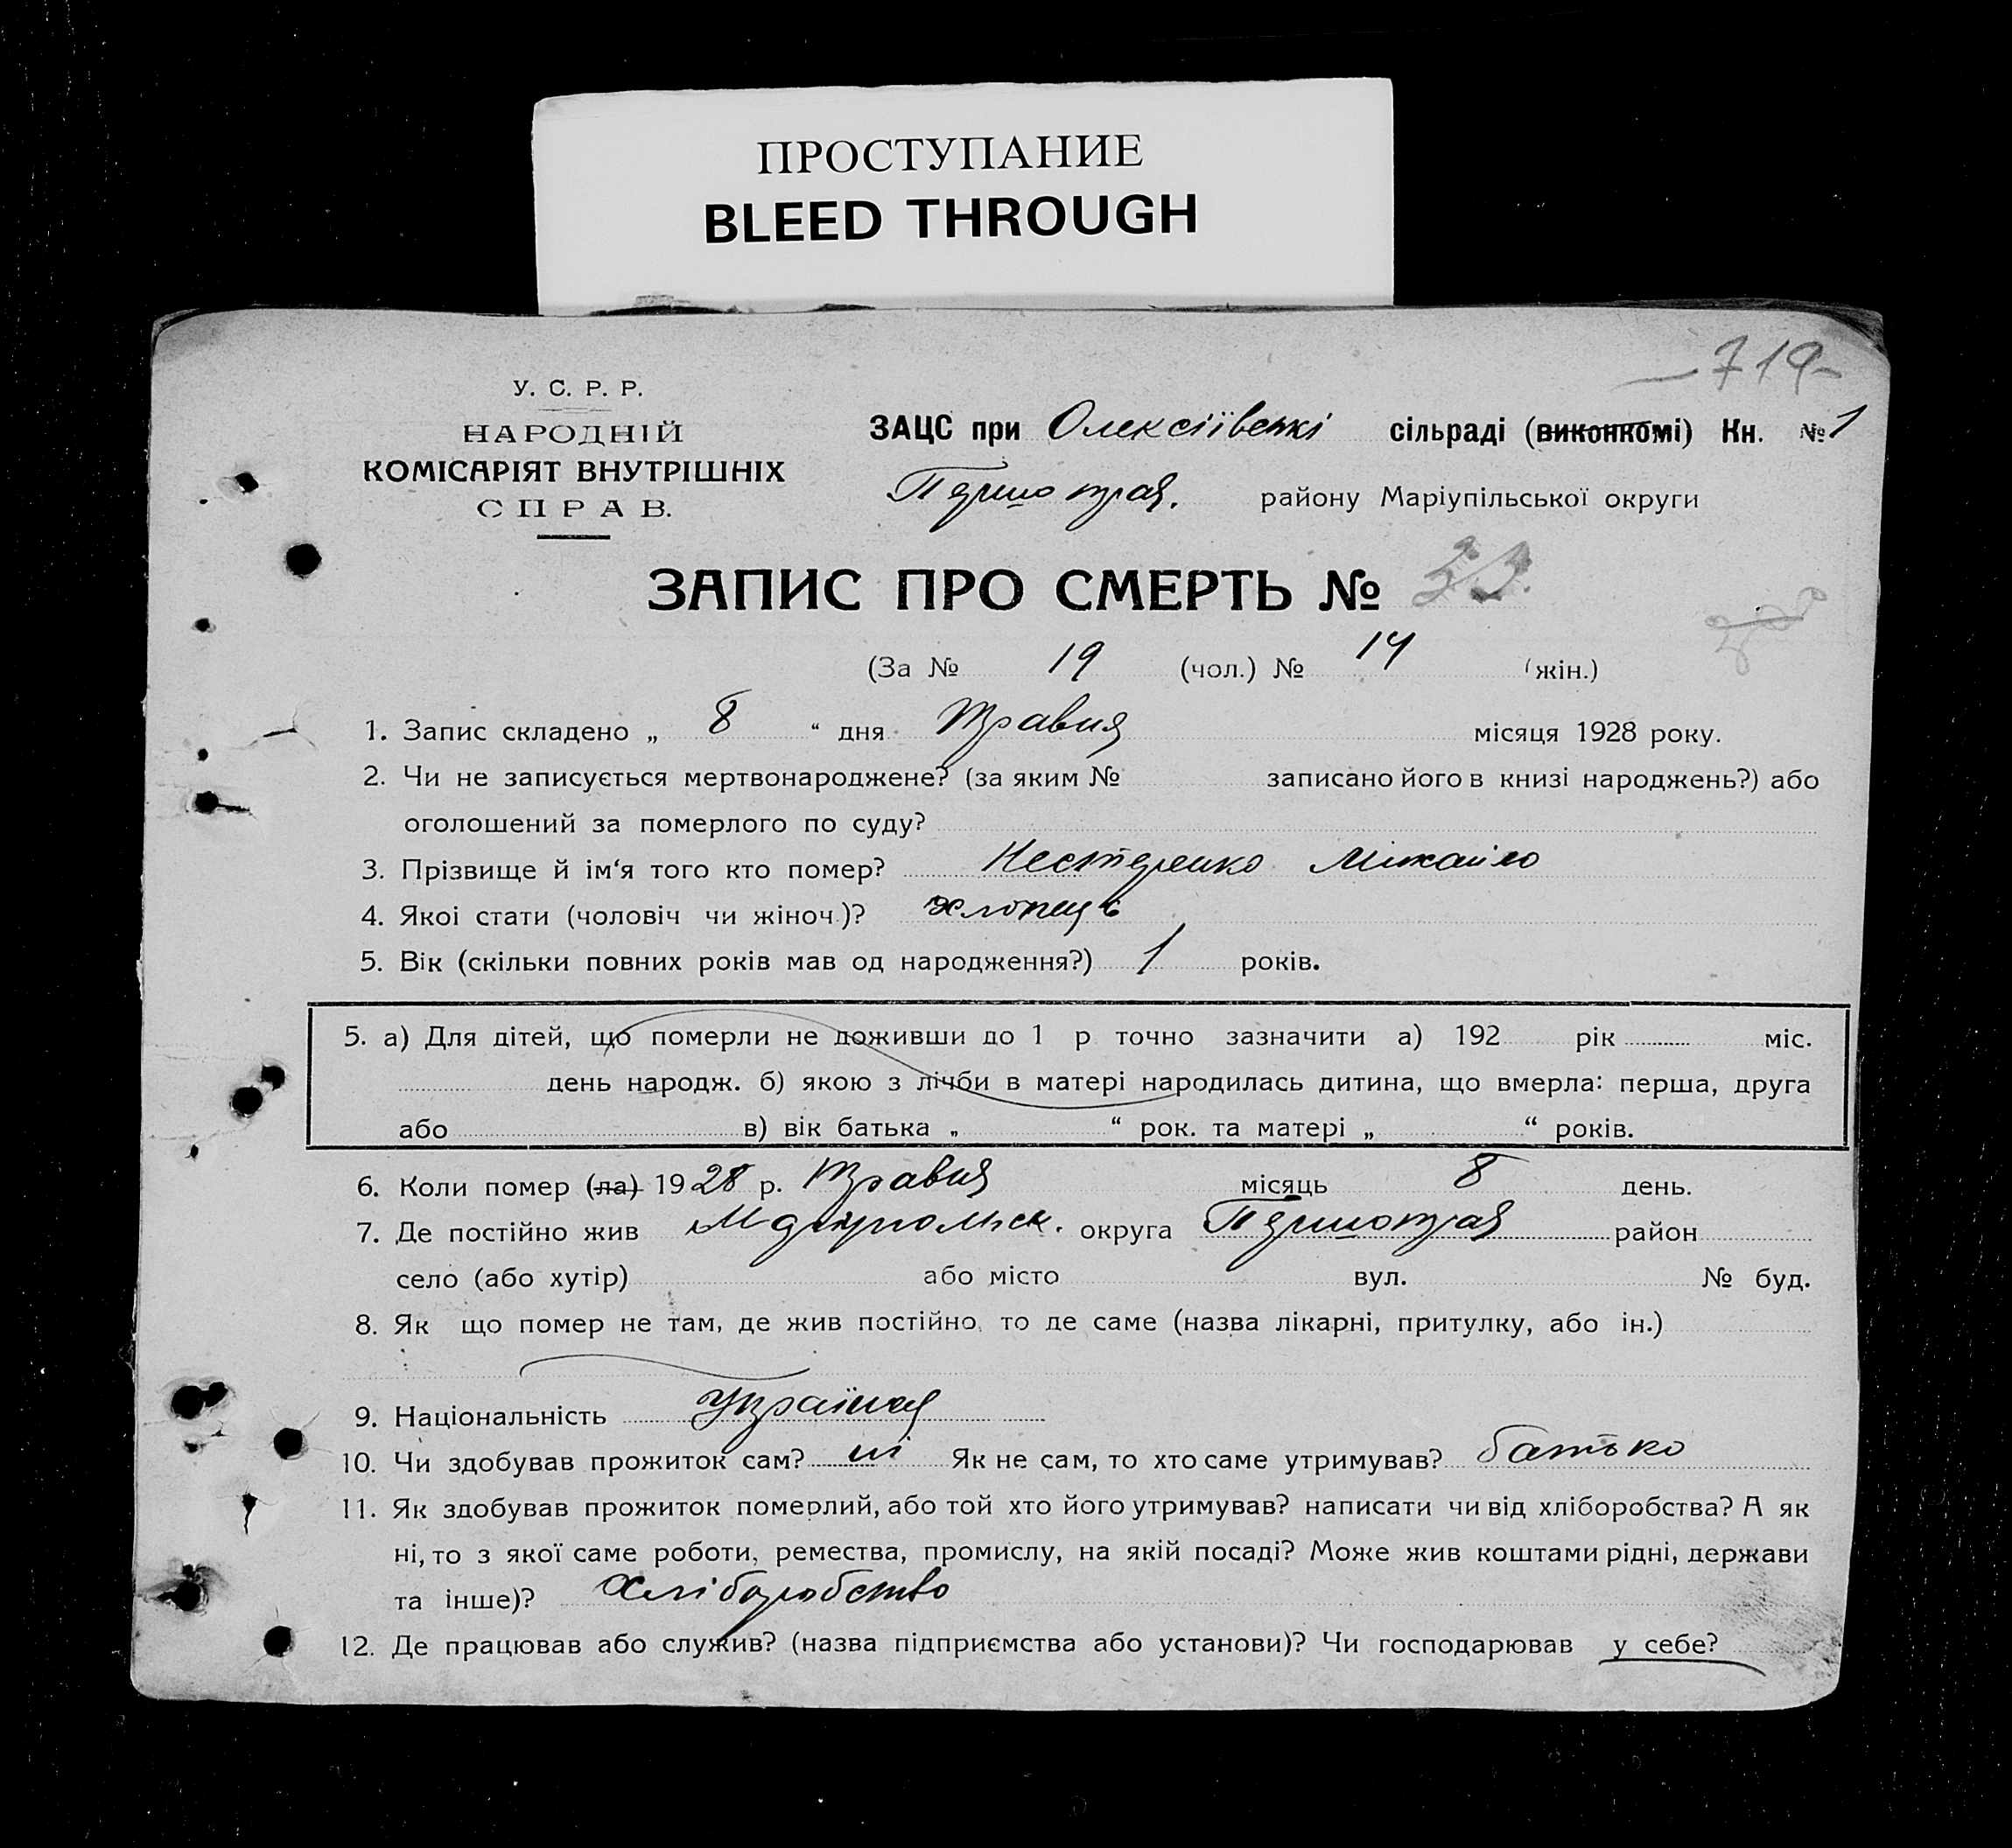 ПРОСТУПАНИЕ
BLEED THROUGH
719-
У. С. Р. Р.
НАРОДНІЙ
КОМІСАРІЯТ ВНУТРІШНІХ
СПРАВ.
ЗАЦС при Олексіївскі сільраді (виконкомі) Кн. № 1
Першотрав. району Маріупільської округи
ЗАПИС ПРО СМЕРТЬ № 33.
(За № 19 (чол.) № 14 (жін.)
1. Запис складено „ 8 “ дня Травня місяця 1928 року.
2. Чи не записується мертвонароджене? (за яким № записано його в книзі народжень?) або
оголошений за померлого по суду?
3. Прізвище й ім‘я того кто помер? Нестеренко Михайло
4. Якоі стати (чоловіч чи жіноч.)? хлопець
5. Вік (скільки повних років мав од народження?) 1 років.
5. а) Для дітей, що померли не доживши до 1 р точно зазначити а) 192 рік міс.
день народж. б) якою з лічби в матері народилась дитина, що вмерла: перша, друга
або в) вік батька „ “ рок. та матері „ “ років.
6. Коли помер (ла) 1928 р. Травня місяць 8 день.
7. Де постійно жив округа Першотрав район
село (або хутір) або місто вул. № буд.
8. Як що помер не там, де жив постійно, то де саме (назва лікарні, притулку, або ін.)
9. Національність Україная
10. Чи здобував прожиток сам? ні Як не сам, то хто саме утримував? батько
11. Як здобував прожиток померлий, або той хто його утримував? написати чи від хліборобства? А як
ні, то з якої саме роботи, ремества, промислу, на якій посаді? Може жив коштами рідні, держави
та інше)? Хліборобство
12. Де працював або служив? (назва підприємства або установи)? Чи господарював у себе?